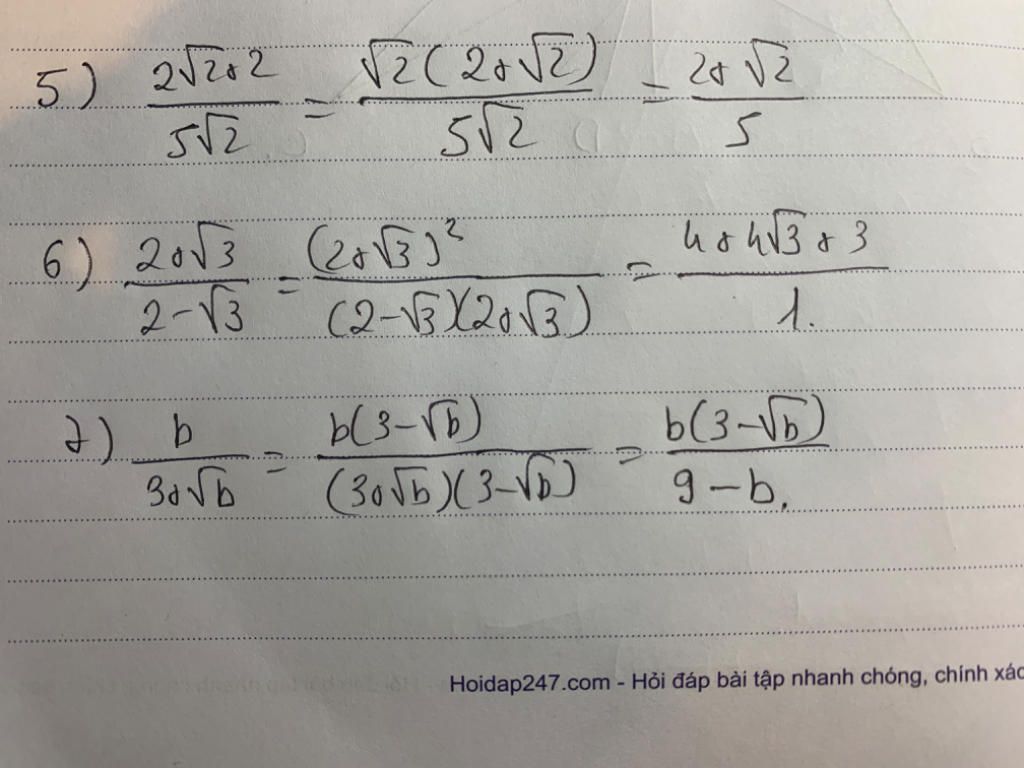 5) \frac{2\sqrt{2}+2}{5\sqrt{2}} = \frac{\sqrt{2}(2+\sqrt{2})}{5\sqrt{2}} = \frac{2+\sqrt{2}}{5}
6) \frac{2+\sqrt{3}}{2-\sqrt{3}} = \frac{(2+\sqrt{3})^2}{(2-\sqrt{3})(2+\sqrt{3})} = \frac{4+4\sqrt{3}+3}{1.}
7) \frac{b}{3+\sqrt{b}} = \frac{b(3-\sqrt{b})}{(3+\sqrt{b})(3-\sqrt{b})} = \frac{b(3-\sqrt{b})}{9-b.}
Hoidap247.com - Hỏi đáp bài tập nhanh chóng, chính xác